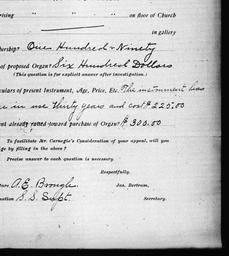 rising " " on floor of Church
in gallery
bership? One Hundred & Ninety
of proposed Organ? Six Hundred Dollars
(This question is for explicit answer after investigation.)
culars of present Instrument, Age, Price, Etc. The instrument has
in use thirty years and cost $225.00
nt already raised toward purchase of Organ? $300.00
To facilitate Mr. Carnegie's Consideration of your appeal, will you
ge by filling in the above?
Precise answer to each question is necessary.
Respectfully,
ture A. E. Brough Jas. Bertram,
nation S. S. Supt. Secretary.